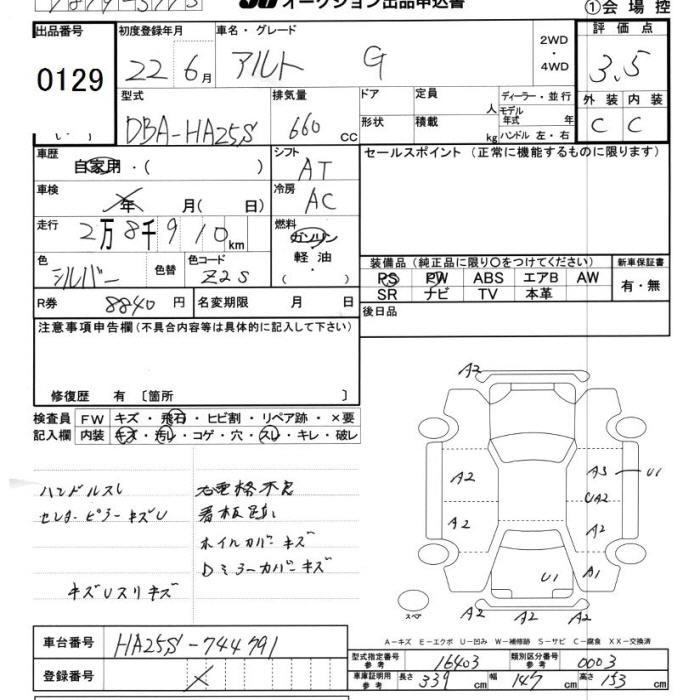 オークション出品申込書
①会場控
出品番号
0129
初度登録年月
22年6月
車名・グレード
アルト G
2WD
・
4WD
評価点
3.5
型式
DBA-HA25S
排気量
660 cc
ドア
定員
人
ディーラー・並行
モデル年式
年
形状
積載
kg
ハンドル 左・右
外装 内装
C C
車歴
自家用・( )
シフト
AT
セールスポイント (正常に機能するものに限ります)
車検
年 月( 日)
冷房
AC
走行
2万8千910km
燃料
ガソリン
軽油
( )
色
シルバー
色替
色コード
Z2S
装備品 (純正品に限り〇をつけてください)
新車保証書
PS PW ABS エアB AW
SR ナビ TV 本革
有・無
R券
8840円
名変期限 月 日
後日品
注意事項申告欄(不具合内容等は具体的に記入して下さい)
修復歴 有〔箇所 〕
検査員記入欄
FW キズ・飛石・ヒビ割・リペア跡・×要
内装 キズ・汚レ・コゲ・穴・スレ・キレ・破レ
ハンドルスレ
センターピラーキズU
キズUスリキズ
看板跡
ホイルカバーキズ
Dミラーカバーキズ
A2
A2
A2
A3 U1
UA2
A2
A1
U1
A2 A2 A2
スペア
A-キズ E-エクボ U-凹み W-補修跡 S-サビ C-腐食 XX-交換済
車台番号
HA25S-744791
登録番号
型式指定番号
参考
16403
類別区分番号
参考
0003
車庫証明用
参考
長さ 339 cm
幅 147 cm
高さ 153 cm